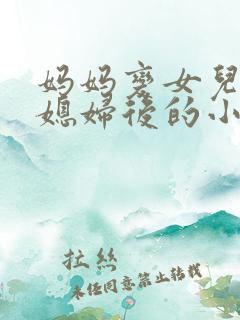 妈妈变女兒
媳婦後的小
拉丝
未经同意禁止转载